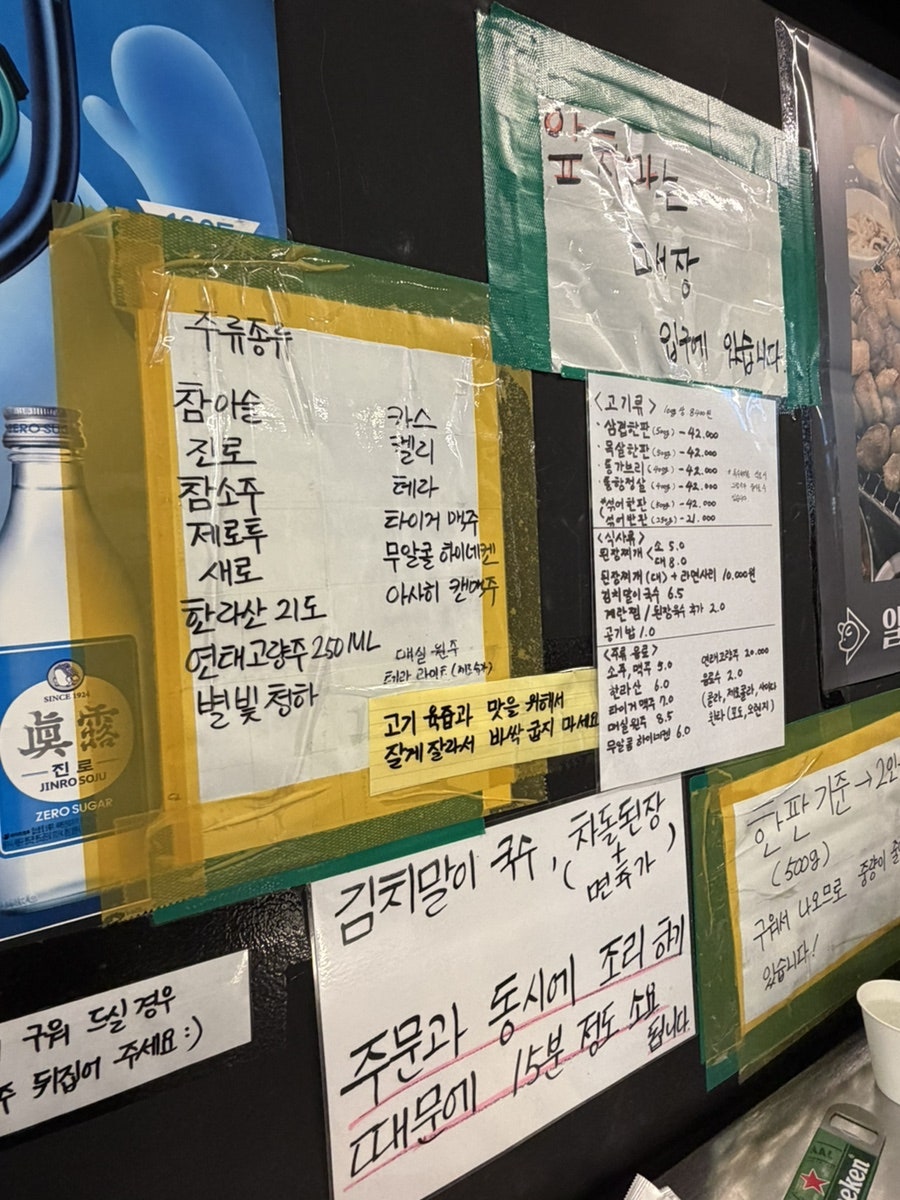 앞치마는
매장
입구에 있습니다.
주류종류
참이슬
진로
참소주
제로투
새로
한라산 21도
연태고량주 250ML
별빛청하
카스
켈리
테라
타이거 맥주
무알콜 하이네켄
아사히 캔맥주
매실원주
테라 라이트 (제로슈거)
<고기류> 100g 당 8400원
· 삼겹한판 (500g) - 42.000
· 목살한판 (500g) - 42.000
· 통가브리 (400g) - 42.000
· 통항정살 (400g) - 42.000
섞어한판 (500g) - 42.000
섞어반판 (250g) - 21.000
<식사류>
된장찌개 < 소 5.0
대 8.0
된장찌개 (대) + 라면사리 10.000원
김치말이 국수 6.5
계란찜 / 된장육수 추가 2.0
공기밥 1.0
<주류 음료>
소주, 맥주 5.0
한라산 6.0
타이거 맥주 7.0
매실원주 8.5
무알콜 하이네켄 6.0
연태고량주 20.000
음료수 2.0
(콜라, 제로콜라, 사이다
환타 (포도, 오렌지)
고기 육즙과 맛을 위해서
잘게 잘라서 바싹 굽지 마세요
김치말이 국수, (차돌된장
+
면추가)
주문과 동시에 조리 하기
때문에 15분 정도 소요
됩니다.
한판 기준 → 2인
(500g)
구워서 나오므로 중량이 줄
있습니다!
구워 드실 경우
뒤집어 주세요 :)
ZERO SU
SINCE 1924
眞露
진로
JINRO SOJU
ZERO SUGAR
eken